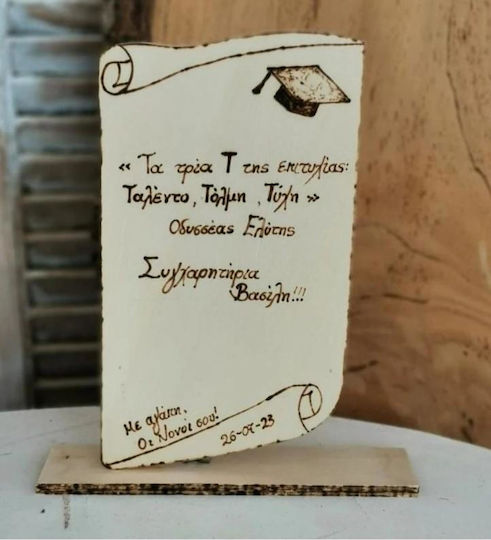 « Τα τρία Τ της επιτυχίας:
Ταλέντο, Τόλμη, Τύχη »
Οδυσσέας Ελύτης
Συγχαρητήρια
Βασίλη!!!
Με αγάπη,
Οι Νονοί σου!
26-07-23